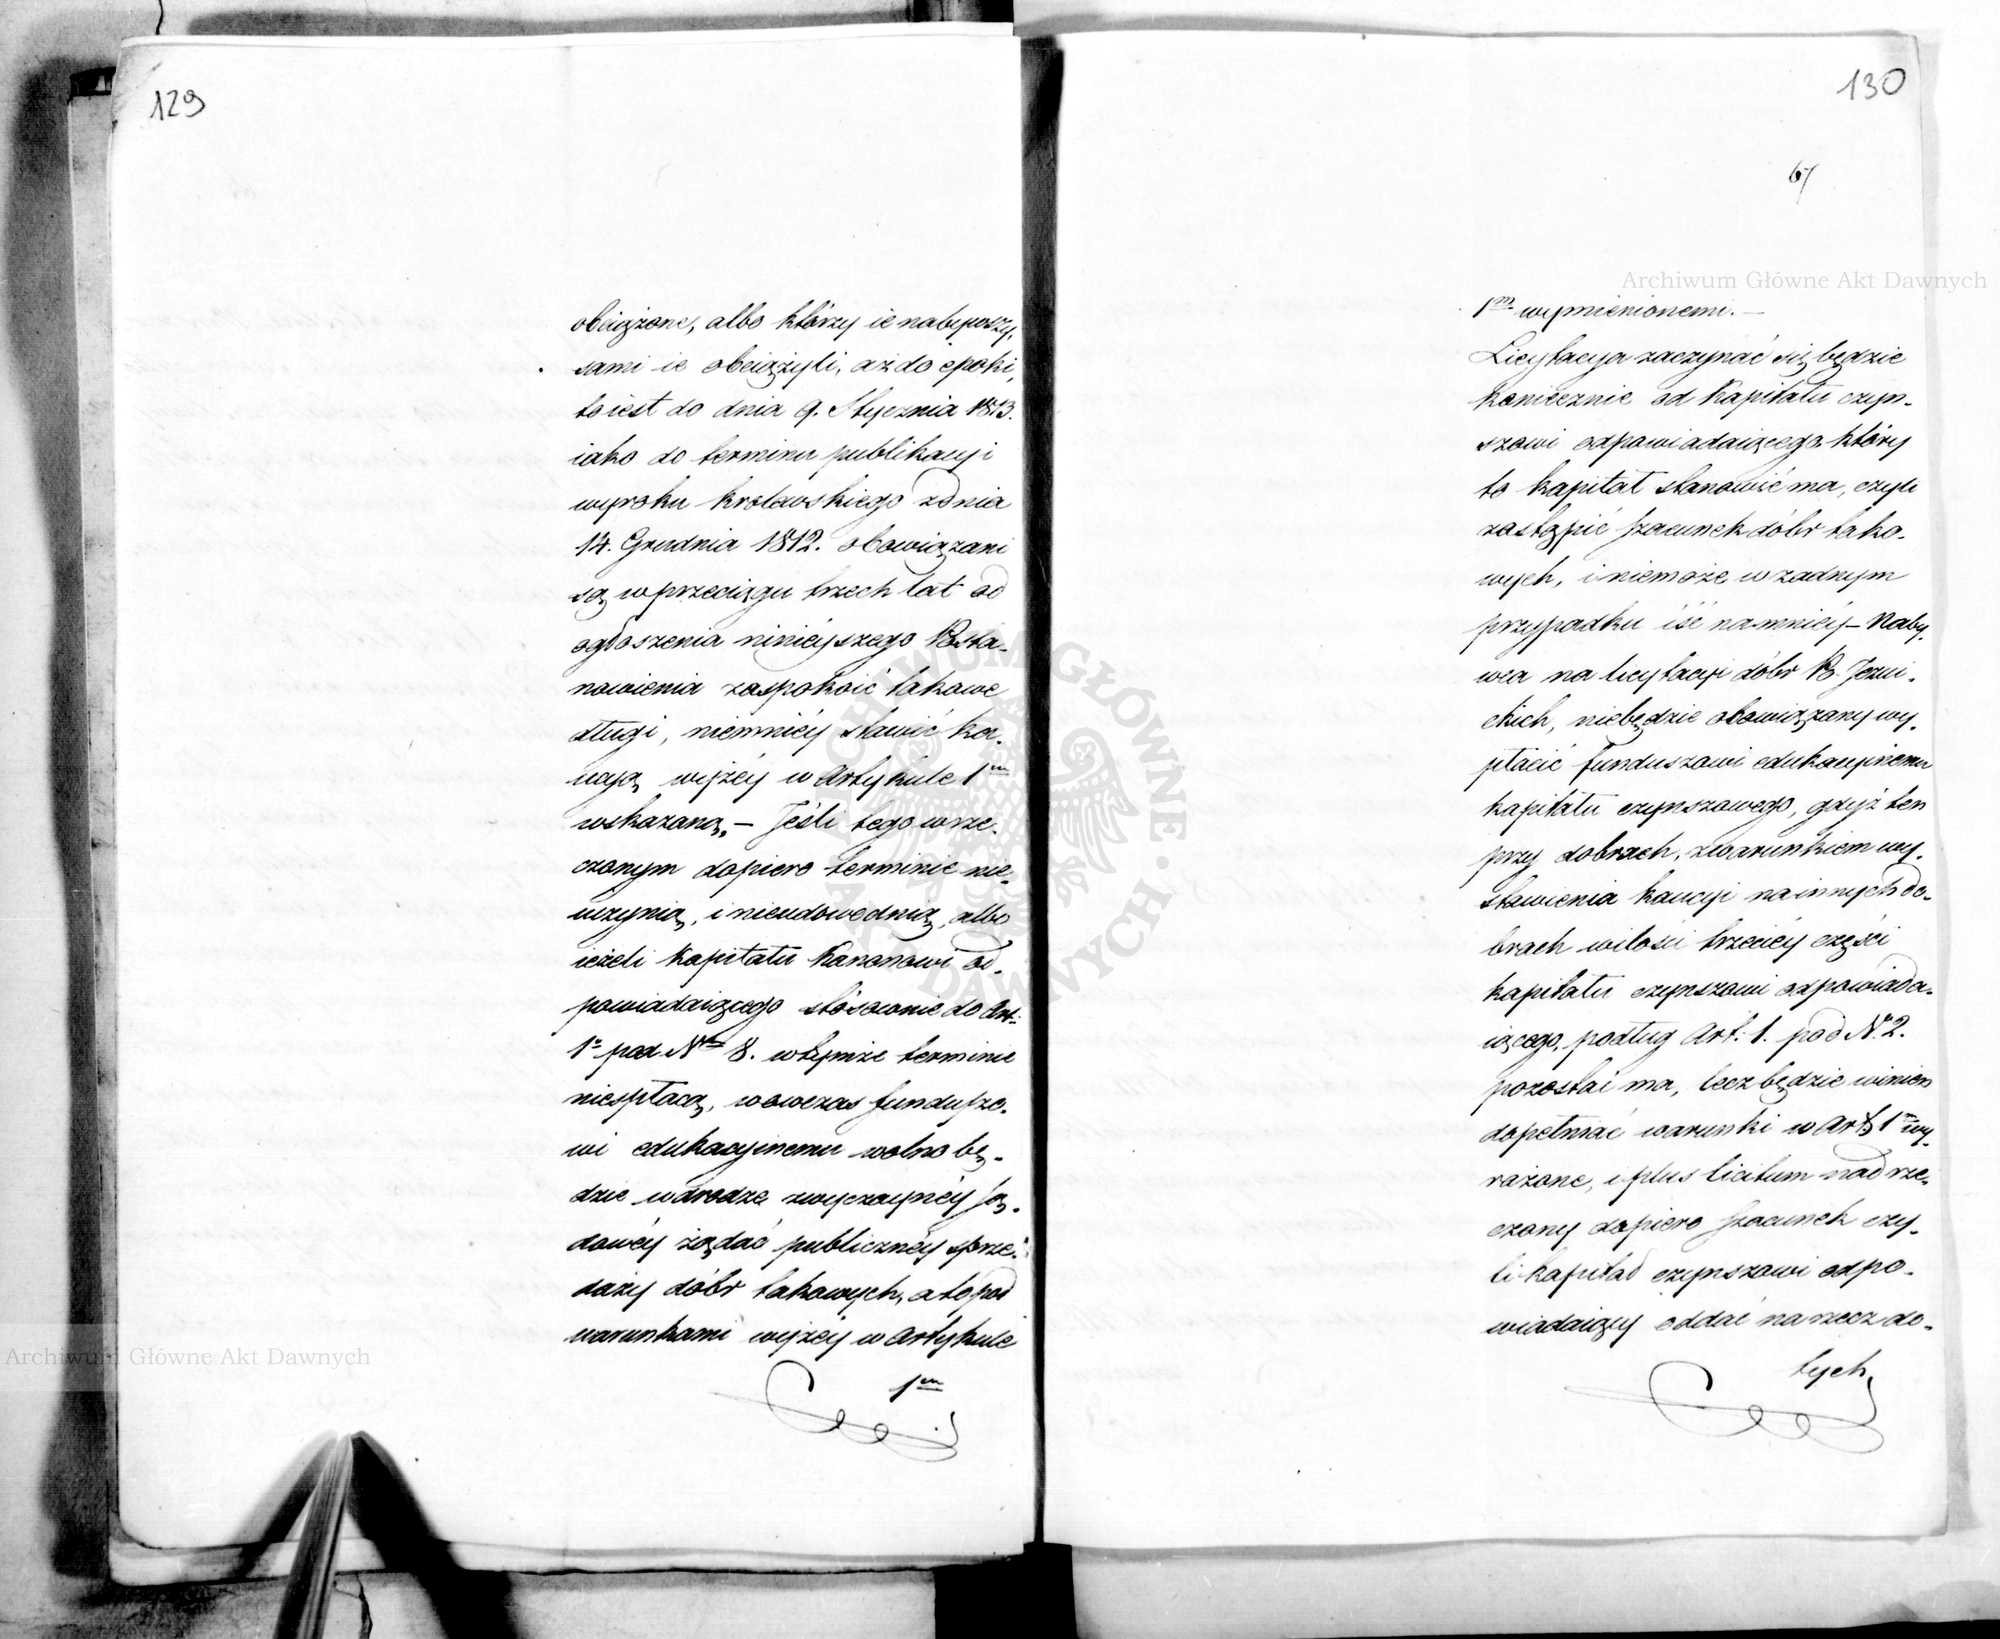 129
obciążone, albo którzy ie nabywszy,
sami ie obciążyli, aż do epoki,
to iest do dnia 9. Stycznia 1813.
iako do terminu publikacyi
wyroku królewskiego z dnia
14. Grudnia 1812. obowiązani
są w przeciągu trzech lat od
ogłoszenia ninieyszego Posta-
nowienia zaspokoić takowe
długi, niemniéy stawić kau-
cyą wyżéy w Artykule 1m
wskazaną. — Jeśli tego w rze-
czonym dopiero terminie nie-
uczynią, i nieudowodnią, albo
ieżeli kapitału kanonowi od-
powiadaiącego stósownie do Art:
1o pod Nm 8. w tymże terminie
niespłacą, wówczas fundusza-
wi edukacyinemu wolno bę-
dzie w drodze zwyczaynéy Są-
dowéy żądać publicznéy sprze-
daży dóbr takowych, a to pod
warunkami wyżéy w Artykule
1m
130
67
1m wymienionemi. —
Licytacya zaczynać się będzie
koniecznie od Kapitału czyn-
szowi odpowiadaiącego który
to kapitał stanowić ma, czyli
zastąpić szacunek dóbr tako-
wych, i niemoże w żadnym
przypadku iść namniéy — Naby-
wca na licytacyi dóbr P. Jezui-
ckich, niebędzie obowiązany wy-
płacić funduszowi edukacyinemu
kapitału czynszowego, gdyż ten
przy dobrach, z warunkiem wy-
stawienia kaucyi na innych do-
brach wilości trzeciéy części
kapitału czynszowi odpowiada-
iącego, podług Art: 1. pod N. 2.
pozostać ma, lecz będzie winien
dopełniać warunki w Art: 1m wy-
rażone, i plus licitum nad rze-
czony dopiero szacunek czy-
li kapitał czynszowi odpo-
wiadaiący oddać na rzecz do-
tych
Archiwum Główne Akt Dawnych
Archiwum Główne Akt Dawnych
ARCHIWUM GŁÓWNE AKT DAWNYCH